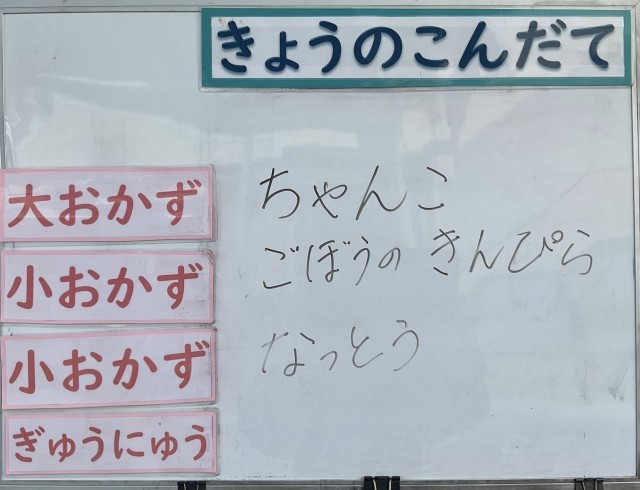 きょうのこんだて
大おかず ちゃんこ
小おかず ごぼうの きんぴら
小おかず なっとう
ぎゅうにゅう